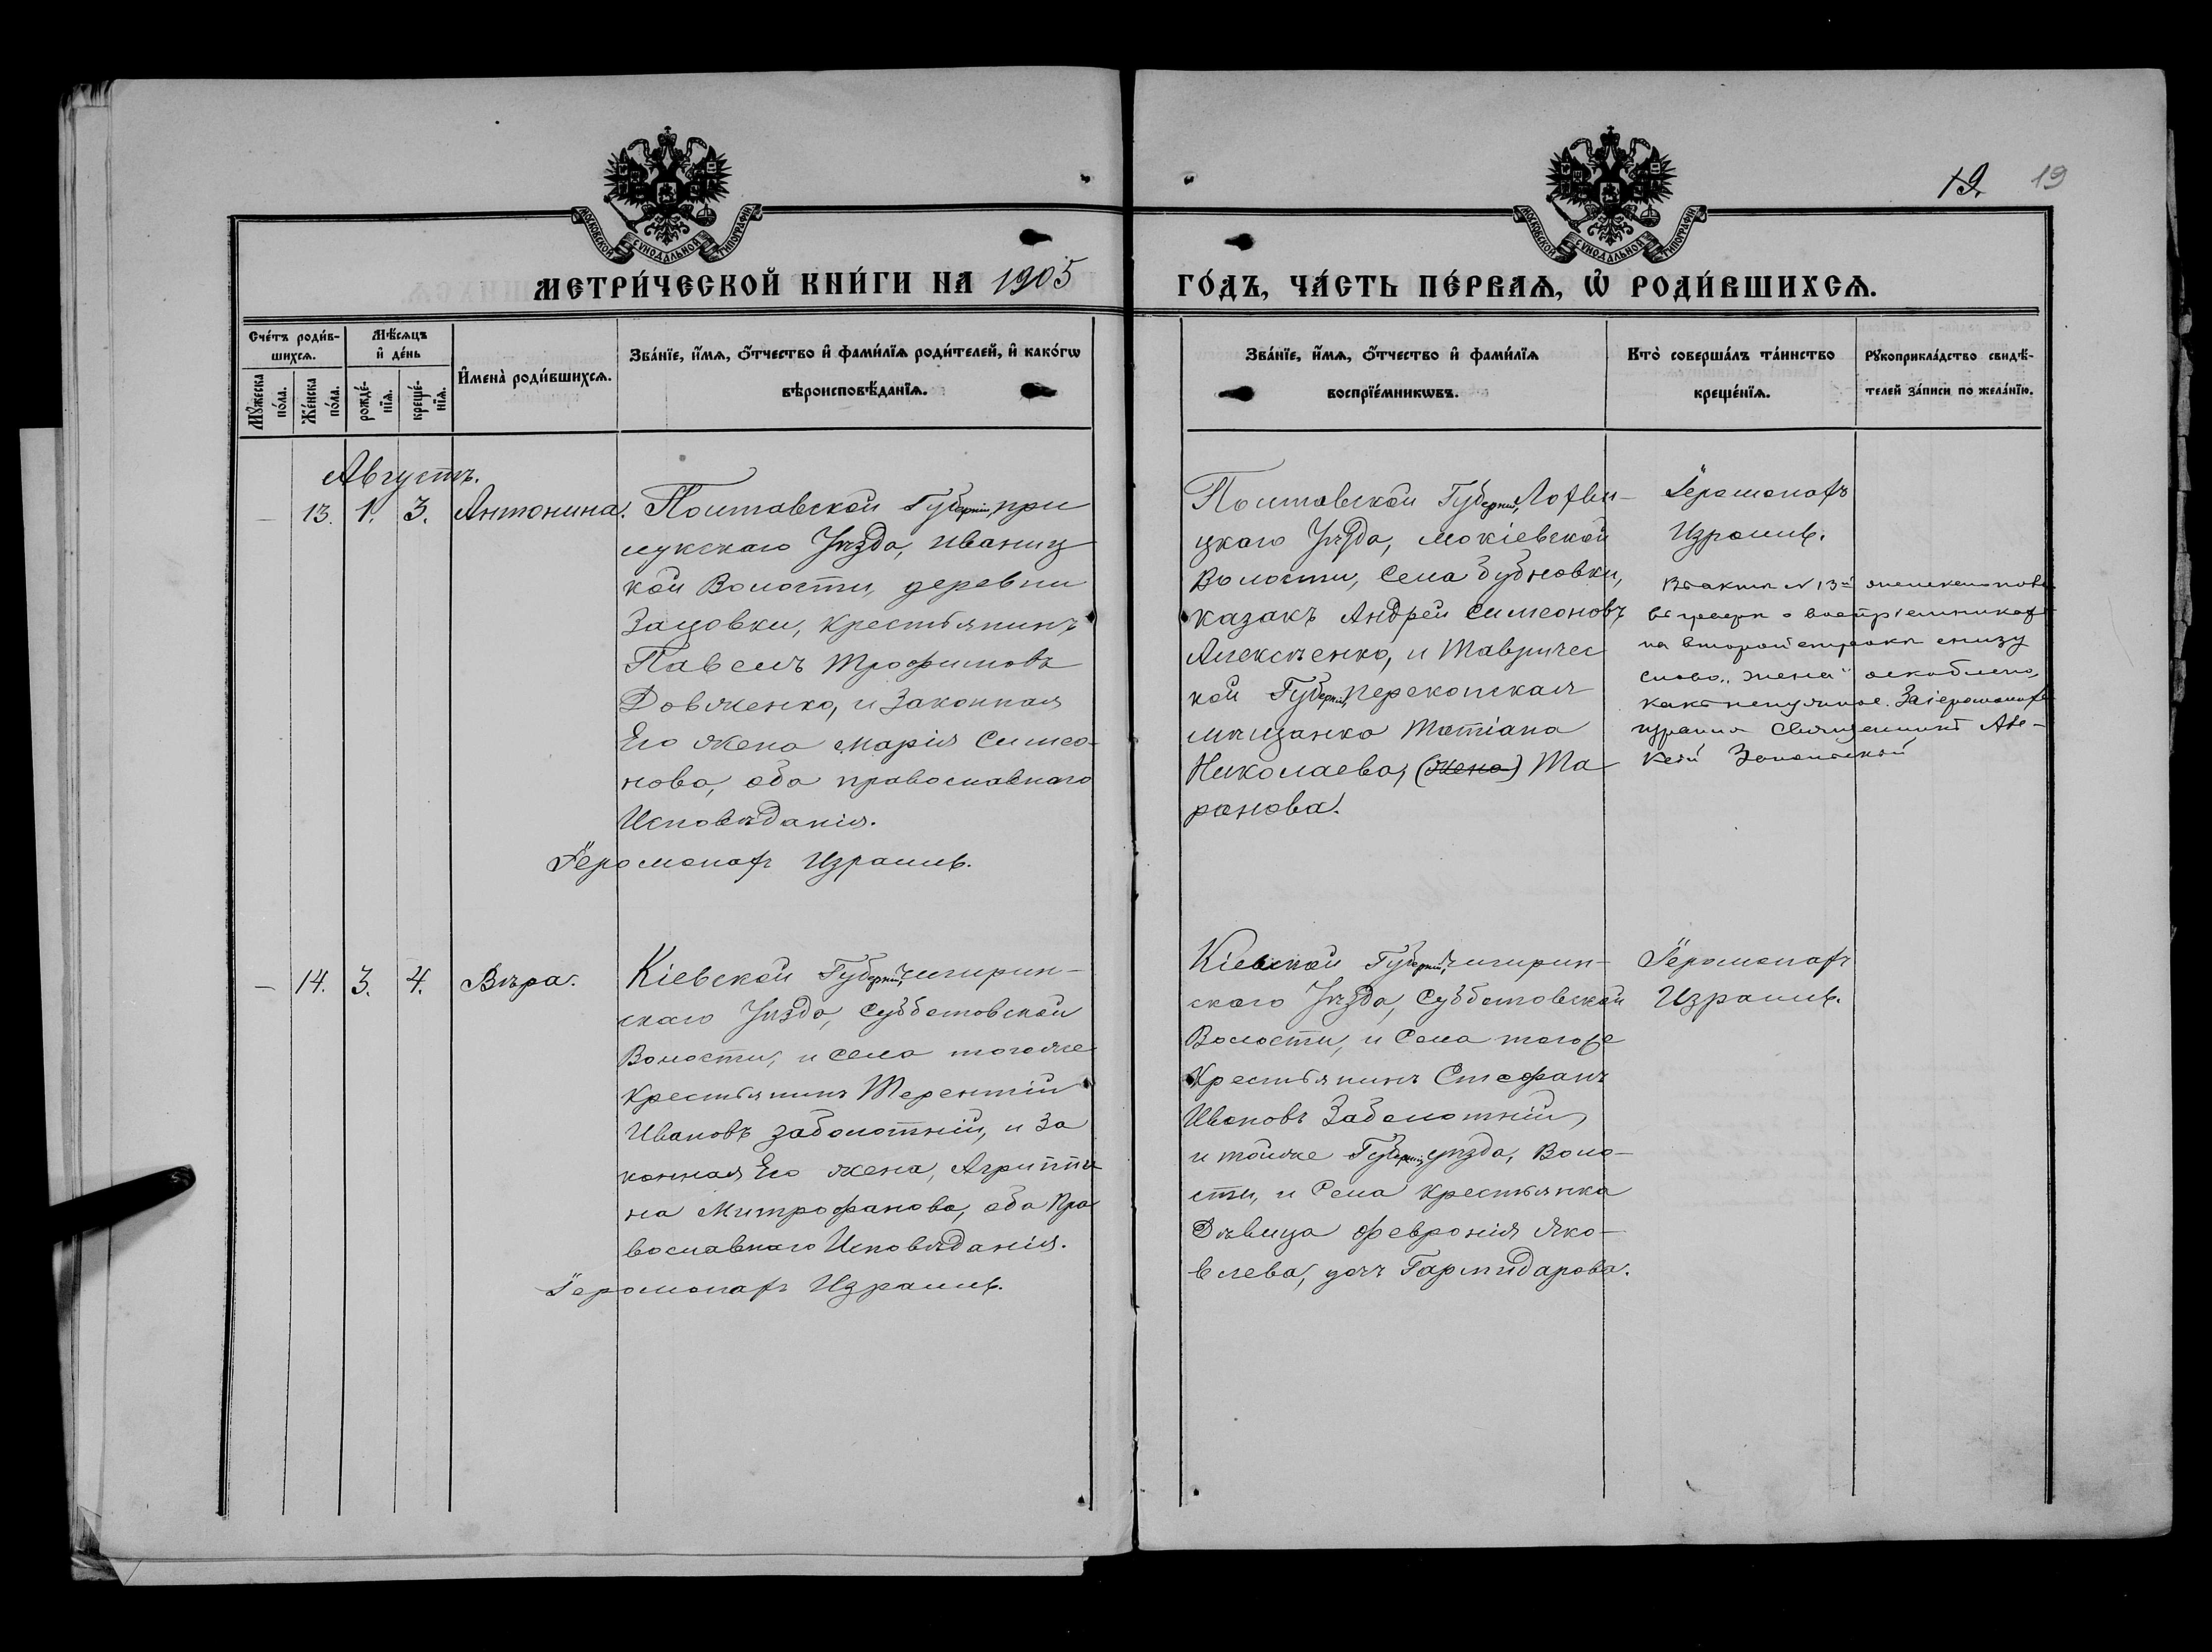 19. 19
МОСКОВСКОЙ СѴНОДАЛЬНОЙ ТИПОГРАФІИ.
МОСКОВСКОЙ СѴНОДАЛЬНОЙ ТИПОГРАФІИ.
МЕТРИ́ЧЕСКОЙ КНИ́ГИ НА 1905 ГО́ДЪ, ЧА́СТЬ ПЕ́РВАѦ, Ѡ҆ РОДИ́ВШИХСѦ.
Сче́тъ роди́в-
шихсѧ.
Мꙋ́жеска
по́ла.
Же́нска
по́ла.
Мѣ́сѧцъ
и҆ де́нь
рожде́-
нїѧ.
креще́-
нїѧ.
И҆мена̀ роди́вшихсѧ.
Зва́нїе, и҆́мѧ, ѻ҆́тчество и҆ фами́лїѧ роди́телей, и҆ како́гѡ
вѣроисповѣ́данїѧ.
Зва́нїе, и҆́мѧ, ѻ҆́тчество и҆ фами́лїѧ
воспрїе́мникѡвъ.
Кто̀ соверша́лъ та́инство
креще́нїѧ.
Рꙋкоприкла́дство свидѣ́-
телей за́писи по жела́нїю.
Августъ.
— 13. 1. 3. Антонина.
Полтавской Губерніи, при
лукскаго Уѣзда, Иваниц
кой Волости, деревни
Зацовки, крестьянинъ
Павелъ Трофимовъ
Довженко, и Законная
Его жена Марія Симео-
нова, оба православнаго
Исповѣданія.
Іеромонахъ Израиль.
Полтавской Губерніи, Лохви-
цкаго Уѣзда, Мокіевской
Волости, Села Бубновки,
казакъ Андрей Симеоновъ
Алексѣенко, и Тавричес
кой Губерніи, Перекопская
мѣщанка Татіана
Николаева, (жена) Та
ранова.
Іеромонахъ
Израиль.
Въ актѣ N 13й женскаго пола
въ графѣ о воспріемникахъ
на второй строкѣ снизу
слово „жена" оскоблено,
какъ ненужное. За іеромонаха
Израиля Священникъ
— 14. 3. 4. Вѣра.
Кіевской Губерніи, Чигирин-
скаго Уѣзда, Субботовской
Волости, и Села тогоже
Крестьянинъ Терентій
Ивановъ Заболотній, и За
конная Его жена, Агрипи
на Митрофанова, оба Пра
вославнаго Исповѣданія.
Іеромонахъ Израиль.
Кіевской Губерніи, Чигирин-
скаго Уѣзда, Субботовской
Волости, и Села тогоже
Крестьянинъ Стефанъ
Ивановъ Заболотній,
и тойже Губерніи, уѣзда, Воло-
сти, и Села крестьянка
Дѣвица Февронія Яко-
влева, дочь Гармидарова.
Іеромонахъ
Израиль.